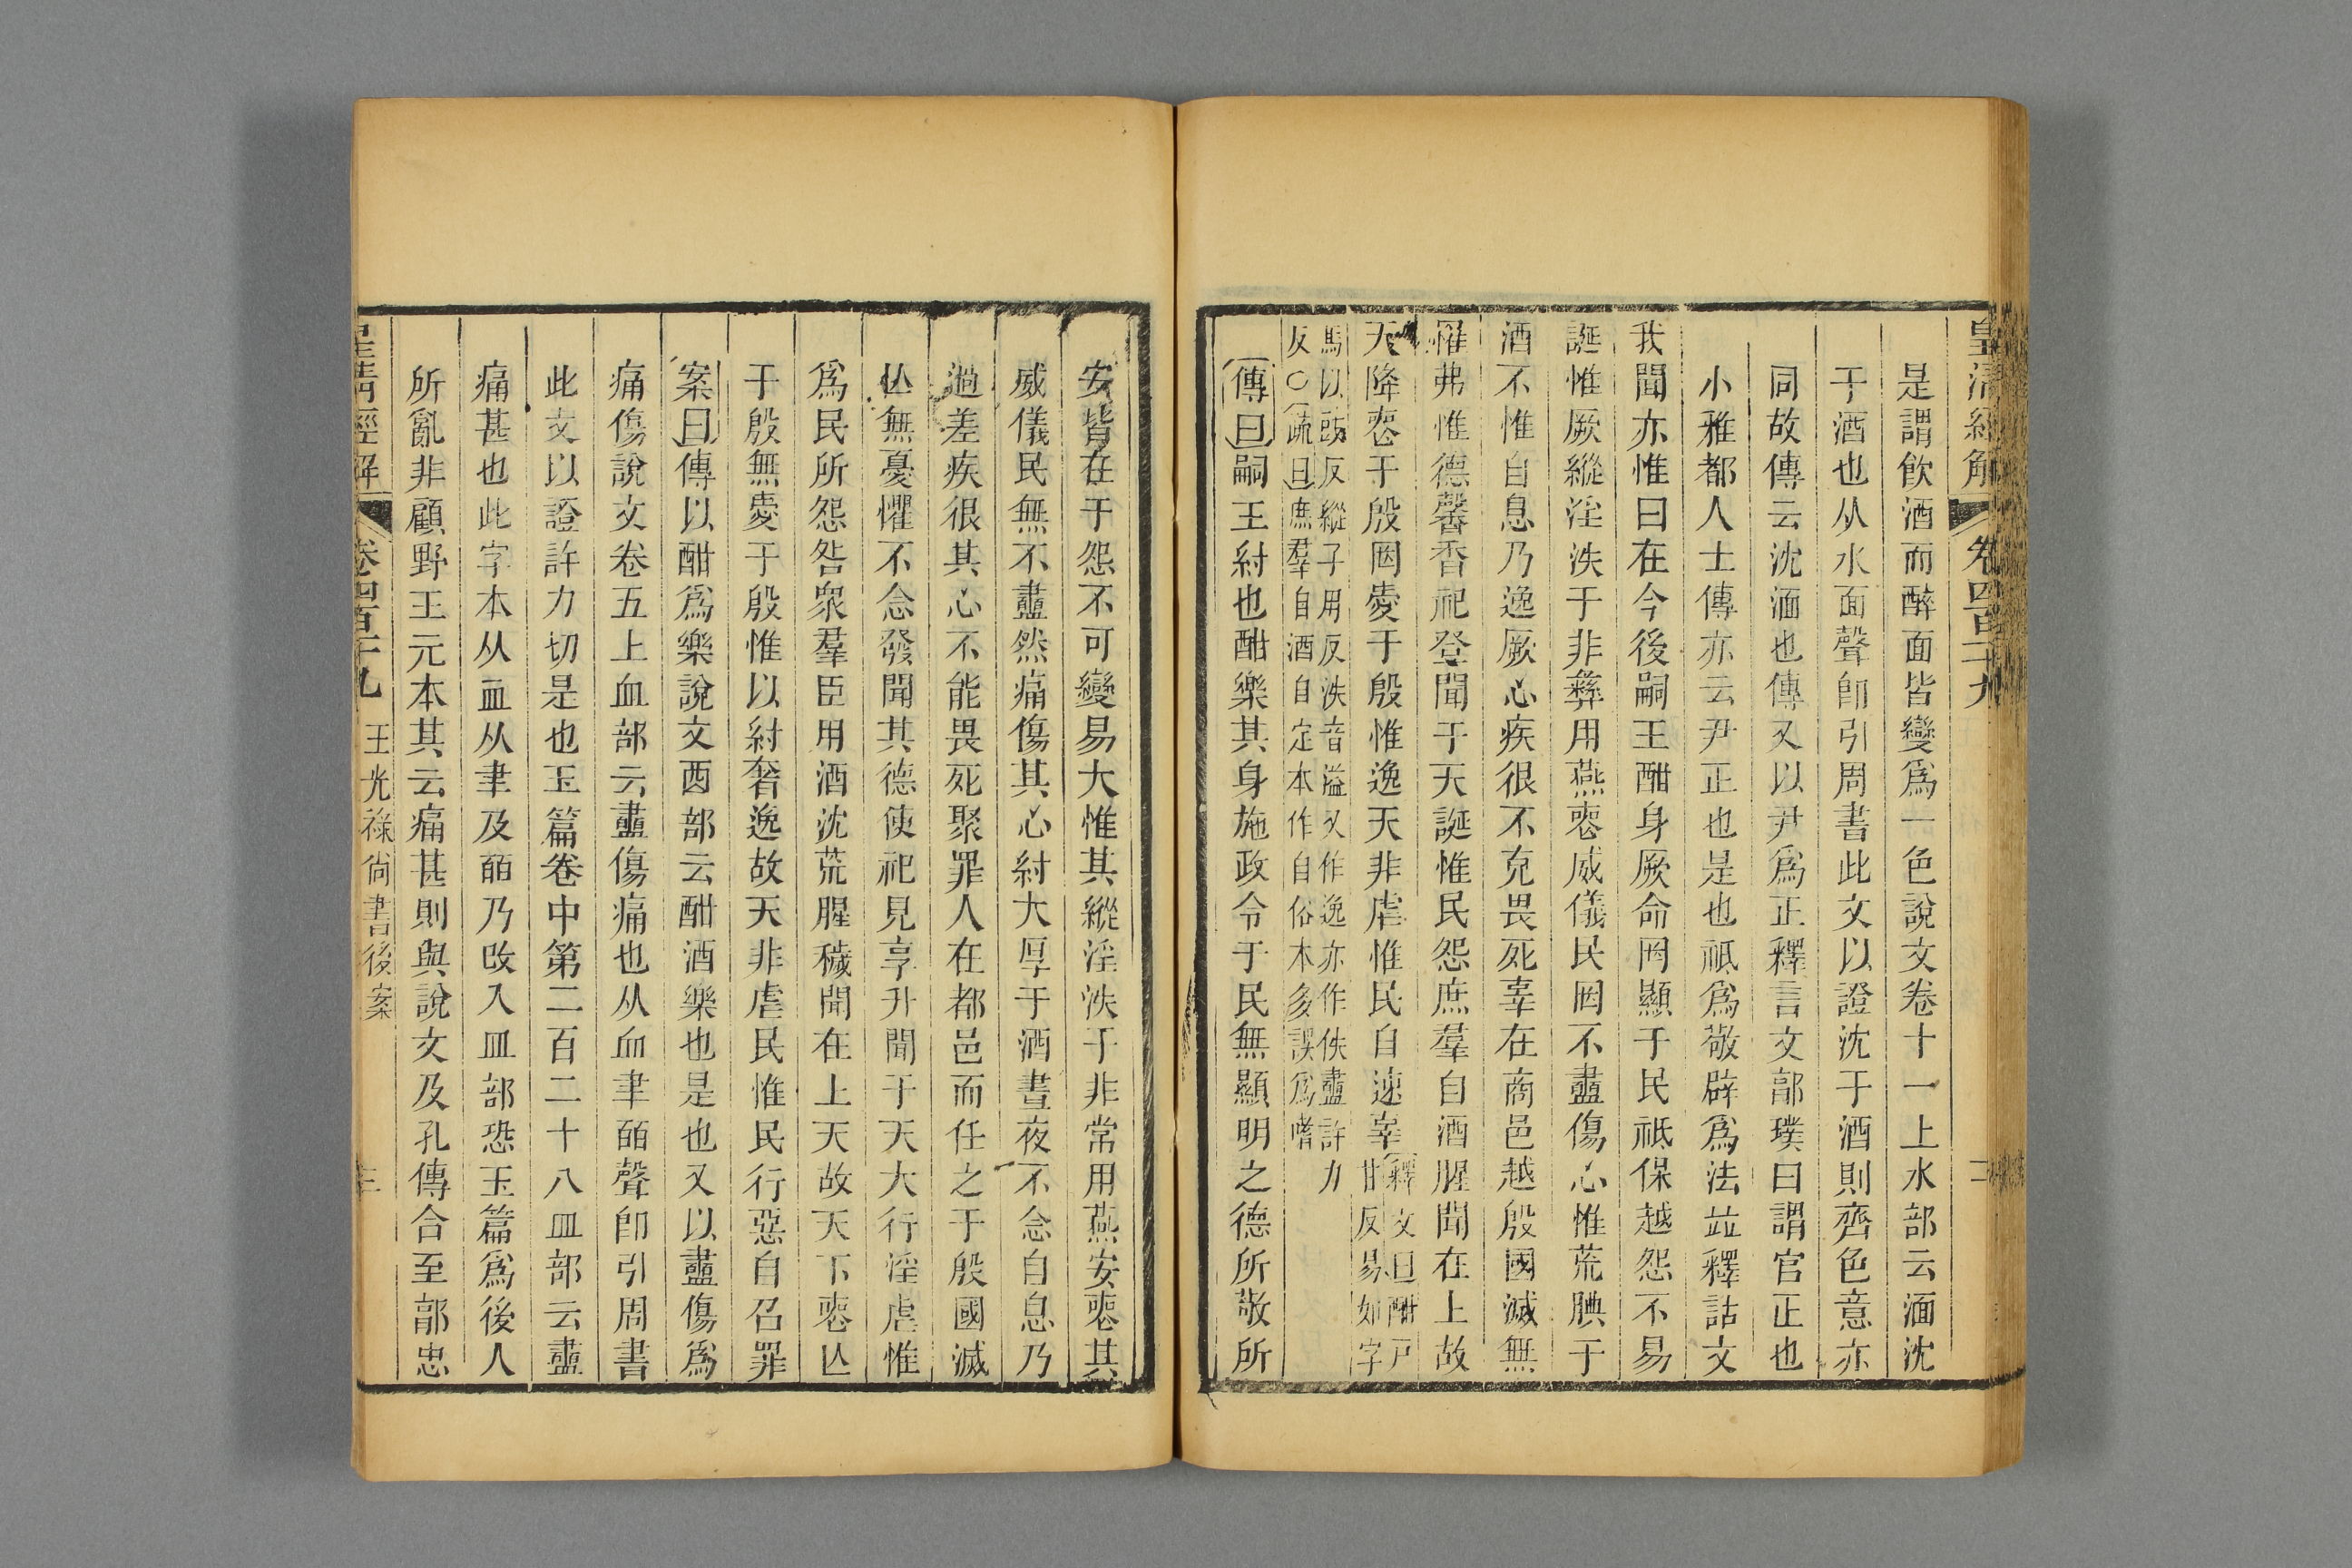 皇清經解 卷四百二十九 二
是謂飲酒而醉面皆變爲一色說文卷十一上水部云湎沈
于酒也从水面聲卽引周書此文以證沈于酒則齊色意亦
同故傳云沈湎也傳又以尹爲正釋言文郭璞曰謂官正也
小雅都人士傳亦云尹正也是也祗爲敬辟爲法竝釋詁文
我聞亦惟曰在今後嗣王酣身厥命罔顯于民祗保越怨不易
誕惟厥縱淫泆于非彝用燕喪威儀民罔不衋傷心惟荒腆于
酒不惟自息乃逸厥心疾很不克畏死辜在商邑越殷國滅無
罹弗惟德馨香祀登聞于天誕惟民怨庶羣自酒腥聞在上故
天降喪于殷罔愛于殷惟逸天非虐惟民自速辜釋文曰酣戸甘反易如字
馬以豉反縱子用反泆音溢又作逸亦作佚衋許力
反○疏曰庶羣自酒自定本作自俗本多誤爲嗜
傳曰嗣王紂也酣樂其身施政令于民無顯明之德所敬所
安皆在于怨不可變易大惟其縱淫泆于非常用燕安喪其
威儀民無不衋然痛傷其心紂大厚于酒晝夜不念自息乃
過差疾很其心不能畏死聚罪人在都邑而任之于殷國滅
亾無憂懼不念發聞其德使祀見享升聞于天大行淫虐惟
爲民所怨咎衆羣臣用酒沈荒腥穢聞在上天故天下喪亾
于殷無愛于殷惟以紂奢逸故天非虐民惟民行惡自召罪
案曰傳以酣爲樂說文酉部云酣酒樂也是也又以衋傷爲
痛傷說文卷五上血部云衋傷痛也从血聿皕聲卽引周書
此文以證許力切是也玉篇卷中第二百二十八皿部云衋
痛甚也此字本从血从聿及皕乃改入皿部恐玉篇爲後人
所亂非顧野王元本其云痛甚則與說文及孔傳合至郭忠
皇清經解 卷四百二十九 王光祿尙書後案 三